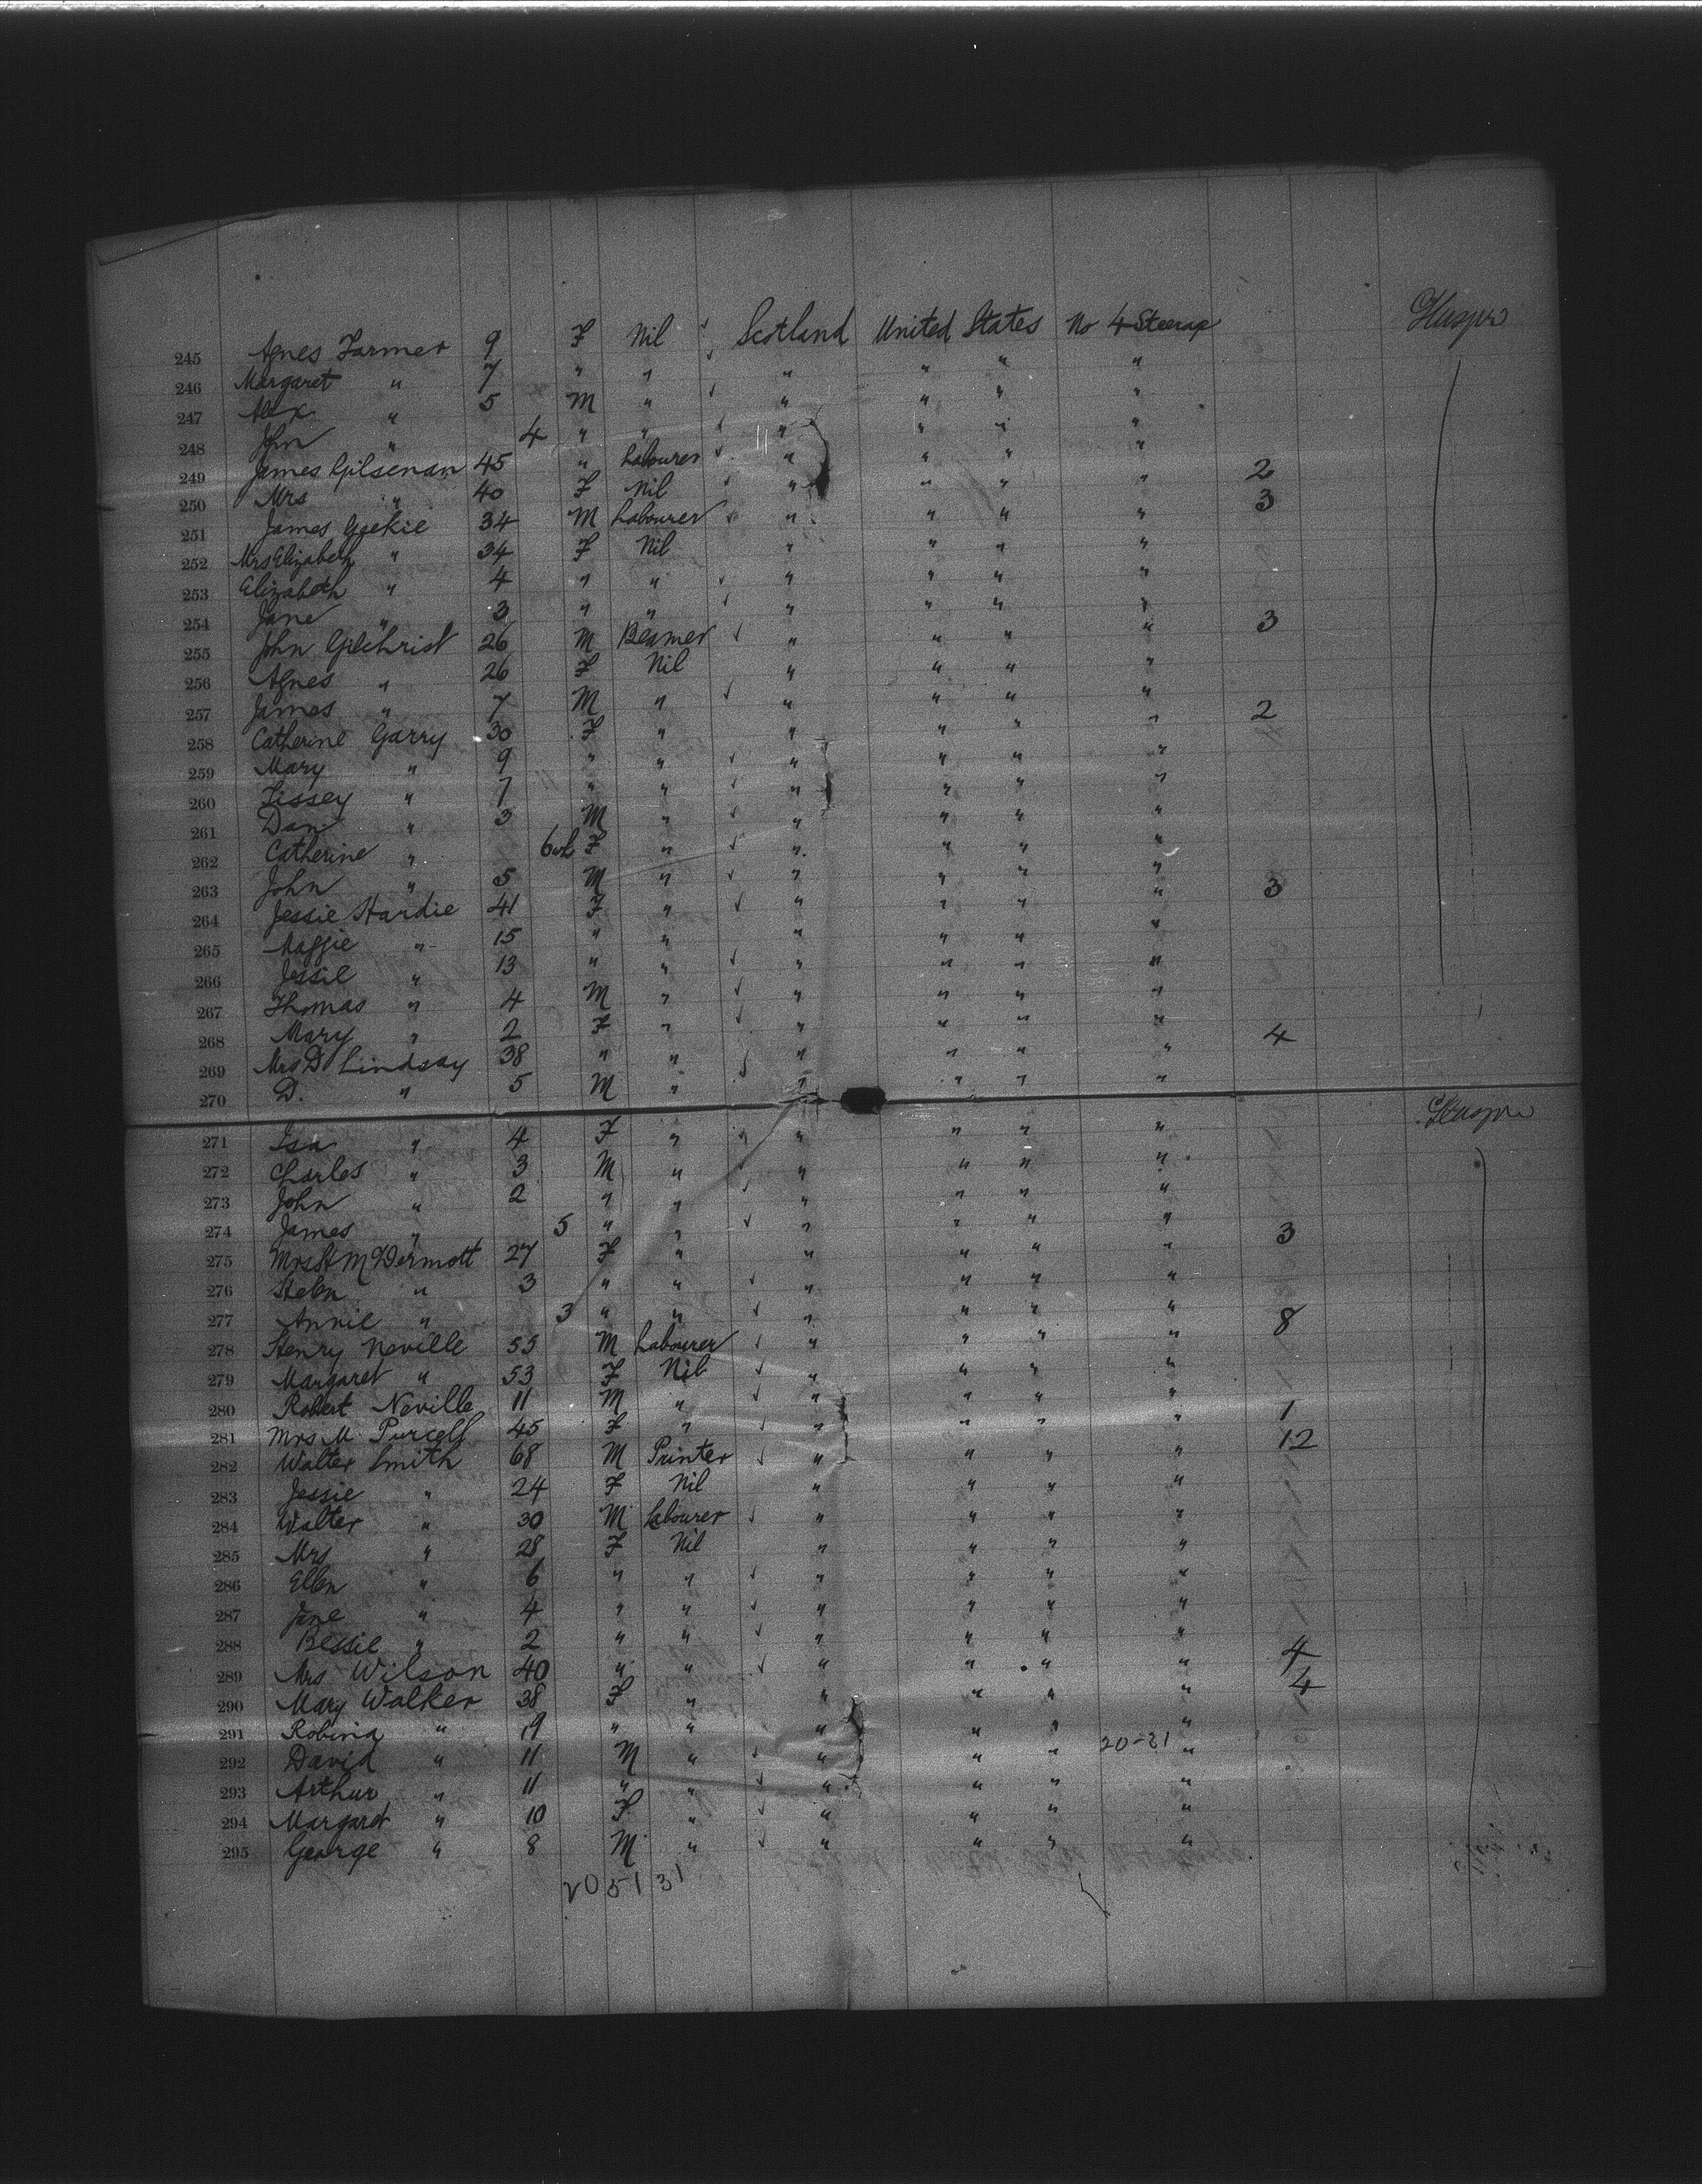 245 Agnes Farmer 9 F Nil Scotland United States No 4 Steerage Glasgow
246 Margaret " 7 " " " " " "
247 Alex " 5 M " " " " "
248 John " 4 " " " " " "
249 James Gilsenan 45 " Labourer " " " " 2
250 Mrs " 40 F Nil " " " " 3
251 James Geekie 34 M Labourer " " " "
252 Mrs Elizabeth " 34 F Nil " " " "
253 Elizabeth " 4 " " " " " "
254 Jane " 3 " " " " " " 3
255 John Gilchrist 26 M Beamer " " " "
256 Agnes " 26 F Nil " " " "
257 James " 7 M " " " " " 2
258 Catherine Garry 30 F " " " " "
259 Mary " 9 " " " " " "
260 Lissey " 7 " " " " " "
261 Dan " 3 M " " " " "
262 Catherine " 6 F " " " " "
263 John " 5 M " " " " " 3
264 Jessie Hardie 41 F " " " " "
265 Maggie " 15 " " " " " "
266 Jessie " 13 " " " " " "
267 Thomas " 4 M " " " " "
268 Mary " 2 F " " " " " 4
269 Mrs D Lindsay 38 " " " " " "
270 D. " 5 M " " " " "
271 Isa " 4 F " " " " " " Glasgow
272 Charles " 3 M " " " " "
273 John " 2 " " " " " "
274 James " 5 " " " " " " 3
275 Mrs H McDermott 27 F " " " " "
276 Helen " 3 " " " " " "
277 Annie " 3 " " " " " " 8
278 Henry Neville 55 M Labourer " " " "
279 Margaret " 53 F Nil " " " "
280 Robert Neville 11 M " " " " " 1
281 Mrs M. Purcell 45 F " " " " " 12
282 Walter Smith 68 M Printer " " " "
283 Jessie " 24 F Nil " " " "
284 Walter " 30 M Labourer " " " "
285 Mrs " 28 F Nil " " " "
286 Ellen " 6 " " " " " "
287 Jane " 4 " " " " " "
288 Bessie " 2 " " " " " " 4
289 Mrs Wilson 40 " " " " " " 4
290 Mary Walker 38 F " " " " "
291 Robina " 19 " " " " " "
292 David " 11 M " " " " 20-31 "
293 Arthur " 11 " " " " " "
294 Margaret " 10 F " " " " "
295 George " 8 M " " " " "
20 51 31